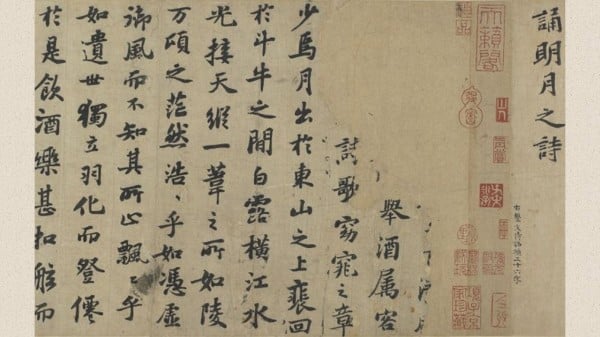 誦明月之詩
天籟閣
舉酒属客
詩歌窈窕之章
少焉月出於東山之上裵回
於斗牛之間白露橫江水
光接天縱一葦之所如陵
万頃之茫然浩〻乎如馮虛
御風而不知其所止飄〻乎
如遺世獨立羽化而登僊
於是飲酒樂甚扣舷而